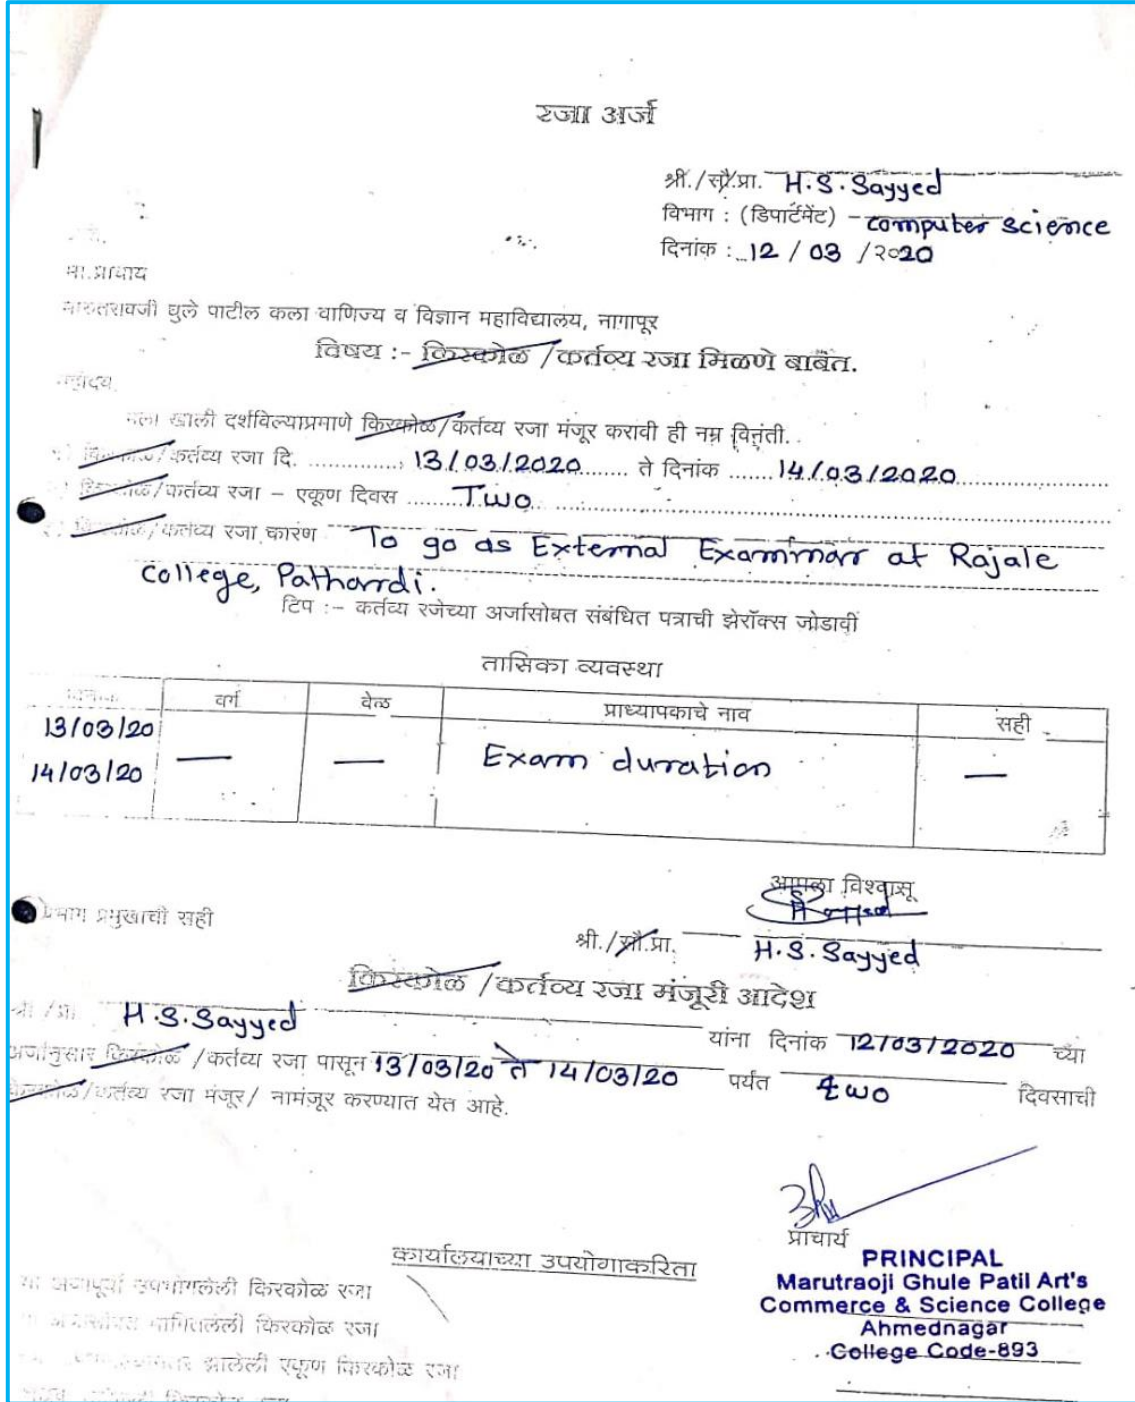 रजा अर्ज
श्री./सौ.प्रा. H.S.Sayyed
विभाग : (डिपार्टमेंट) - computer science
दिनांक : 12 / 03 /२०20
मा.प्राचार्य
मारुतरावजी घुले पाटील कला वाणिज्य व विज्ञान महाविद्यालय, नागापूर
विषय :- किरकोळ /कर्तव्य रजा मिळणे बाबत.
महोदय
मला खाली दर्शविल्याप्रमाणे किरकोळ/कर्तव्य रजा मंजूर करावी ही नम्र विनंती.
किरकोळ/कर्तव्य रजा दि. .............. 13/03/2020 ....... ते दिनांक ....... 14/03/2020
किरकोळ/कर्तव्य रजा - एकूण दिवस ....... Two
किरकोळ/कर्तव्य रजा कारण To go as External Examinar at Rajale
college, Pathardi.
टिप :- कर्तव्य रजेच्या अर्जासोबत संबंधित पत्राची झेरॉक्स जोडावीं
तासिका व्यवस्था
दिनांक वर्ग वेळ प्राध्यापकाचे नाव सही
13/03/20
14/03/20 — — Exam duration —
आपला विश्वासू
विभाग प्रमुखाची सही
श्री./सौ.प्रा. H.S.Sayyed
किरकोळ /कर्तव्य रजा मंजूरी आदेश
श्री /प्रा. H.S.Sayyed यांना दिनांक 12/03/2020 च्या
अर्जानुसार किरकोळ /कर्तव्य रजा पासून 13/03/20 ते 14/03/20 पर्यंत two दिवसाची
किरकोळ/कर्तव्य रजा मंजूर/ नामंजूर करण्यात येत आहे.
प्राचार्य
PRINCIPAL
Marutraoji Ghule Patil Art's
Commerce & Science College
Ahmednagar
College Code-893
कार्यालयाच्या उपयोगाकरिता
या अर्जापूर्वी उपभोगलेली किरकोळ रजा
या अर्जासोबत मागितलेली किरकोळ रजा
झालेली एकूण किरकोळ रजा